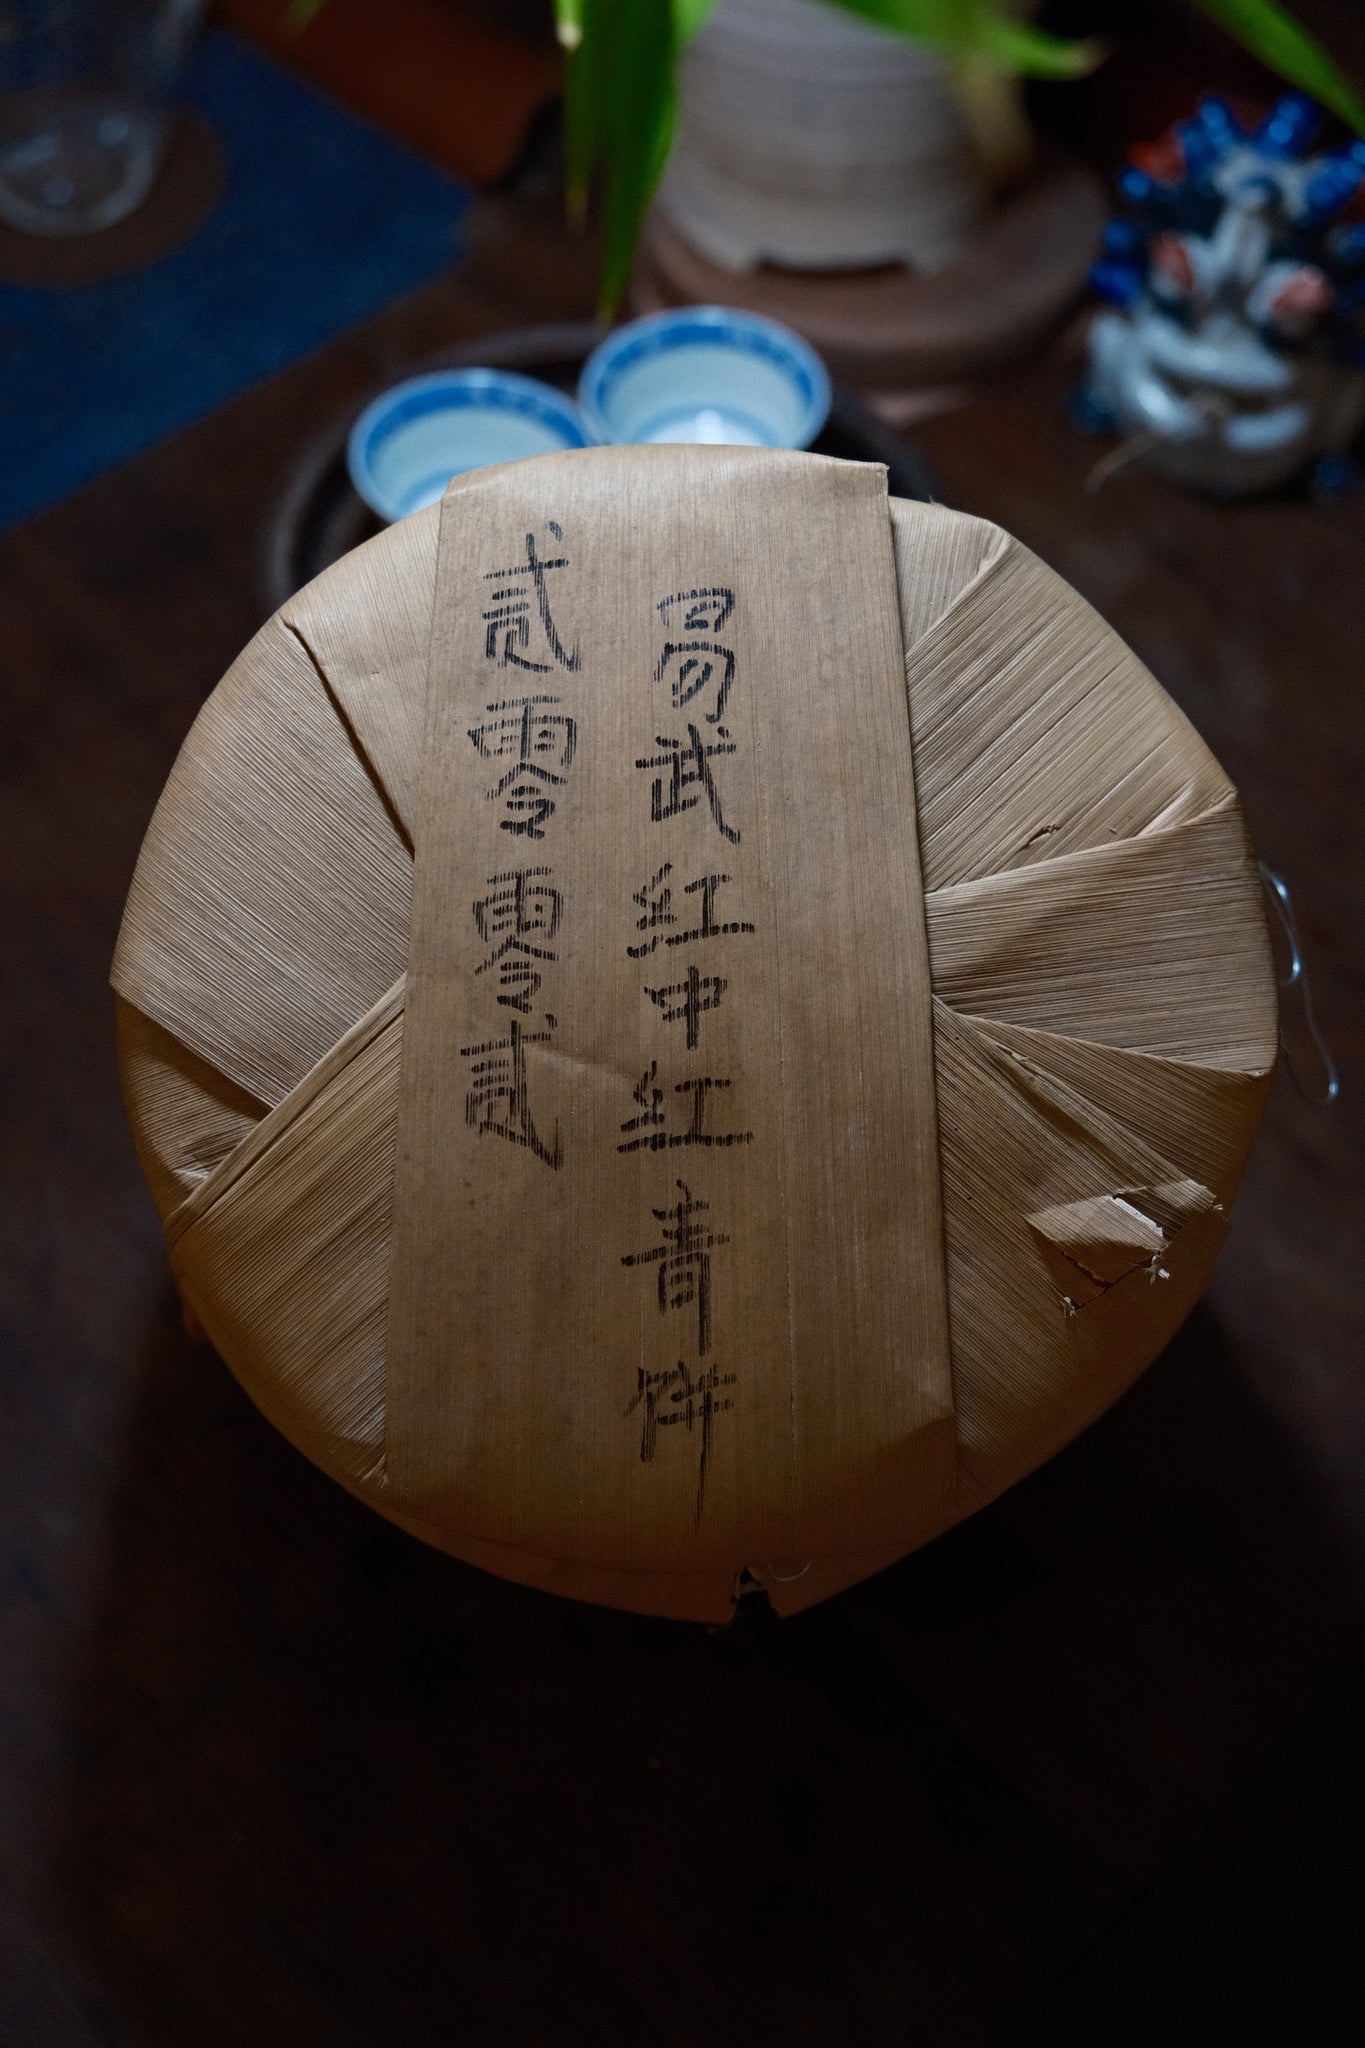 易武紅中紅青餅
貳零零貳